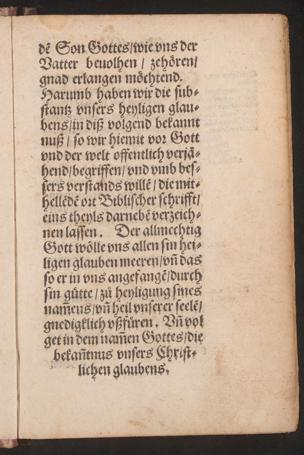 dẽ Son Gottes/wie vns der
Vatter beuolhen / zehören/
gnad erlangen möchtend.
Harumb haben wir die sub-
stantz vnsers heyligen glau-
bens/in diß volgend bekannt
nuß / so wir hiemit vor Gott
vnd der welt offentlich verjä-
hend/begriffen/ vnd vmb bes-
sers verstands willẽ/ die mit-
hellẽdẽ ort Biblischer schrifft/
eins theyls darnebẽ verzeich-
nen lassen. Der allmechtig
Gott wölle vns allen sin hei-
ligen glauben meeren/vñ das
so er in vns angefangẽ/durch
sin gütte/zů heyligung sines
nam̃ens/vñ heil vnserer seelẽ/
gnedigklich vßfüren. Vñ vol
get in dem nam̃en Gottes/die
bekañtnus vnsers Christ-
lichen glaubens.